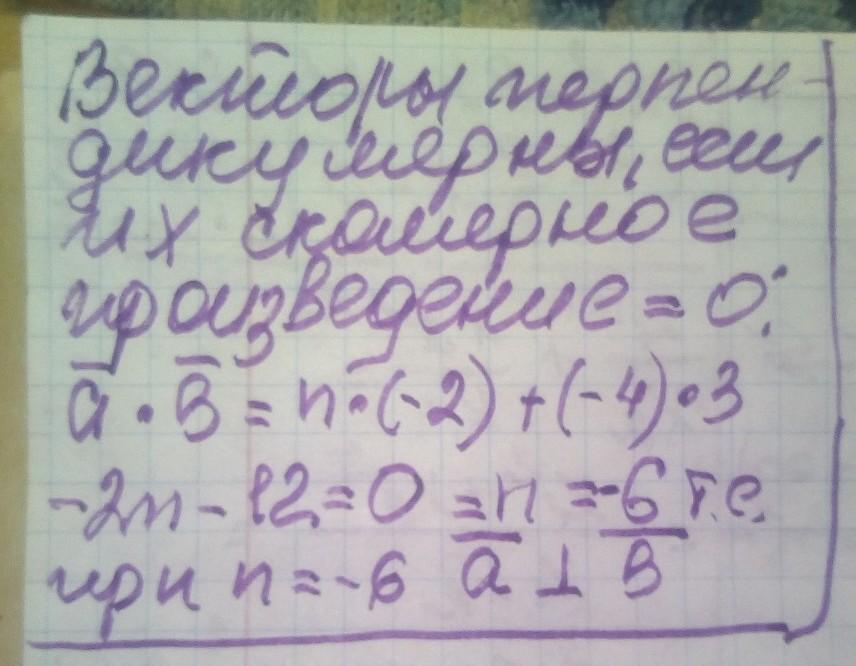 Векторы перпен-
дикулярны, если
их скалярное
произведение = 0:
a̅ · b̅ = n · (-2) + (-4) · 3
-2n - 12 = 0 = n = -6 т.е.
при n = -6 a̅ ⊥ b̅